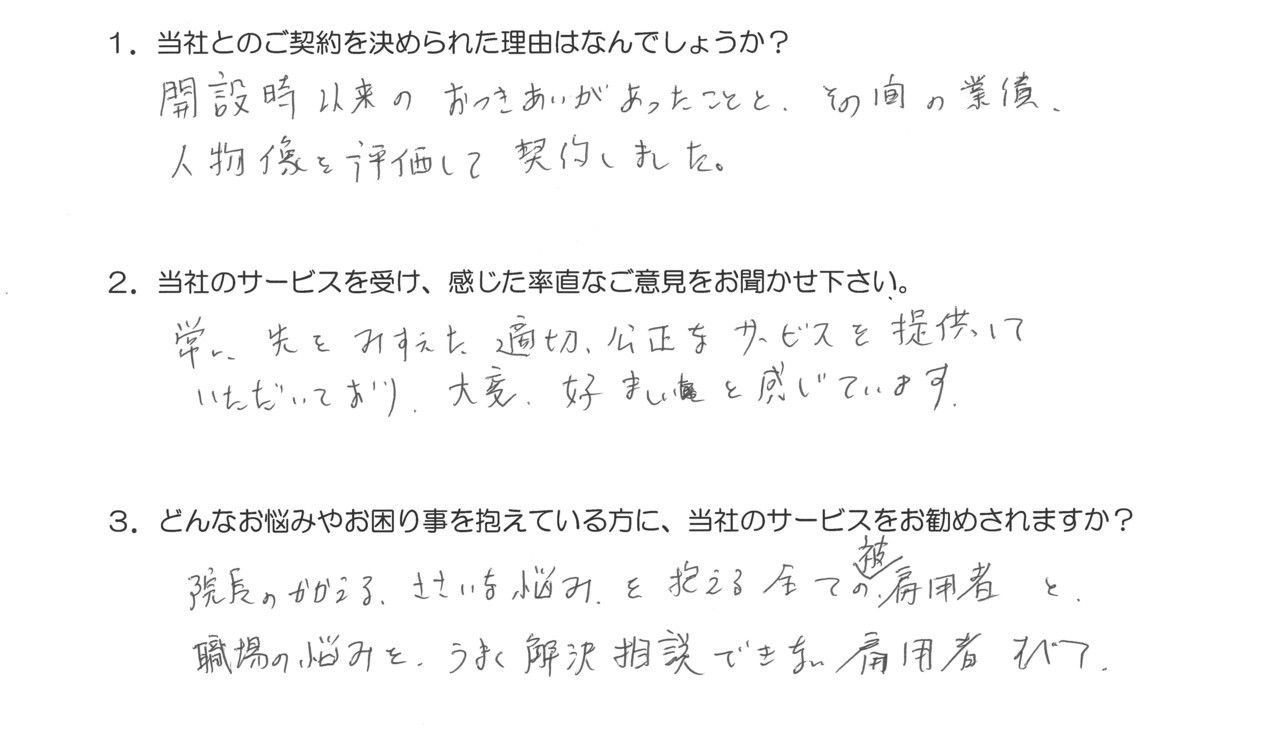 1．当社とのご契約を決められた理由はなんでしょうか？
開設時以来の おつきあいがあったことと、その間の業債、
人物像を評価して 契約しました。
2．当社のサービスを受け、感じた率直なご意見をお聞かせ下さい。
常に、先を みすえた 適切、公正な サービスを 提供して
いただいており、大変、好ましいと感じています。
3．どんなお悩みやお困り事を抱えている方に、当社のサービスをお勧めされますか？
院長のかかえる、ささいな悩み、を 抱える 全ての、被雇用者 と、
職場の悩みを、うまく解決相談できない 雇用者 すべて、